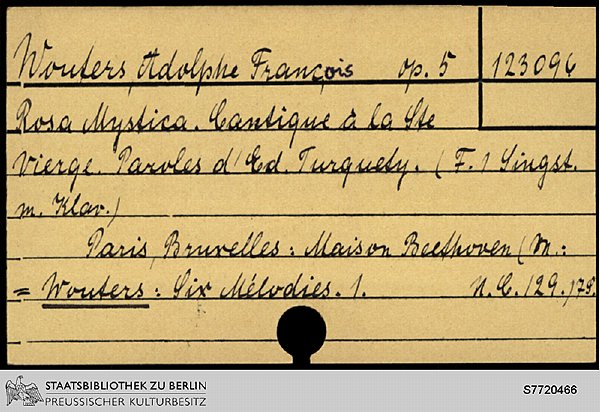 Wouters, Adolphe François op. 5 123096
Rosa Mystica. Cantique à la Ste
Vierge. Paroles d'Ed. Turquety. (F. 1 Singst.
m. Klav.)
Paris, Bruxelles: Maison Beethoven (M.:
= Wouters: Six Mélodies. 1. N.C. 129.)78.
STAATSBIBLIOTHEK ZU BERLIN
PREUSSISCHER KULTURBESITZ
S7720466